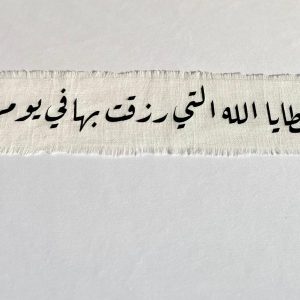 طايا الله التي رزقت بها في يوم